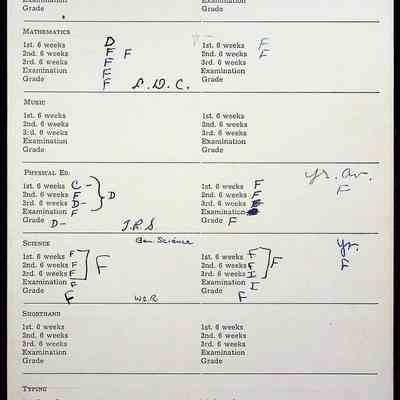 Examination Examination
Grade Grade
MATHEMATICS
1st. 6 weeks D 1st. 6 weeks F
2nd. 6 weeks F F 2nd. 6 weeks F
3rd. 6 weeks F 3rd. 6 weeks
Examination F Examination
Grade F L.D.C. Grade
MUSIC
1st. 6 weeks 1st. 6 weeks
2nd. 6 weeks 2nd. 6 weeks
3rd. 6 weeks 3rd. 6 weeks
Examination Examination
Grade Grade
PHYSICAL ED. yr. av.
1st. 6 weeks C- 1st. 6 weeks F F
2nd. 6 weeks F D 2nd. 6 weeks F
3rd. 6 weeks D- 3rd. 6 weeks
Examination F Examination
Grade D- J.R.S. Grade F
SCIENCE Gen Science yr.
1st. 6 weeks F 1st. 6 weeks F
2nd. 6 weeks F F 2nd. 6 weeks F F F
3rd. 6 weeks F 3rd. 6 weeks I
Examination F Examination I
Grade F WCR Grade F
SHORTHAND
1st. 6 weeks 1st. 6 weeks
2nd. 6 weeks 2nd. 6 weeks
3rd. 6 weeks 3rd. 6 weeks
Examination Examination
Grade Grade
TYPING